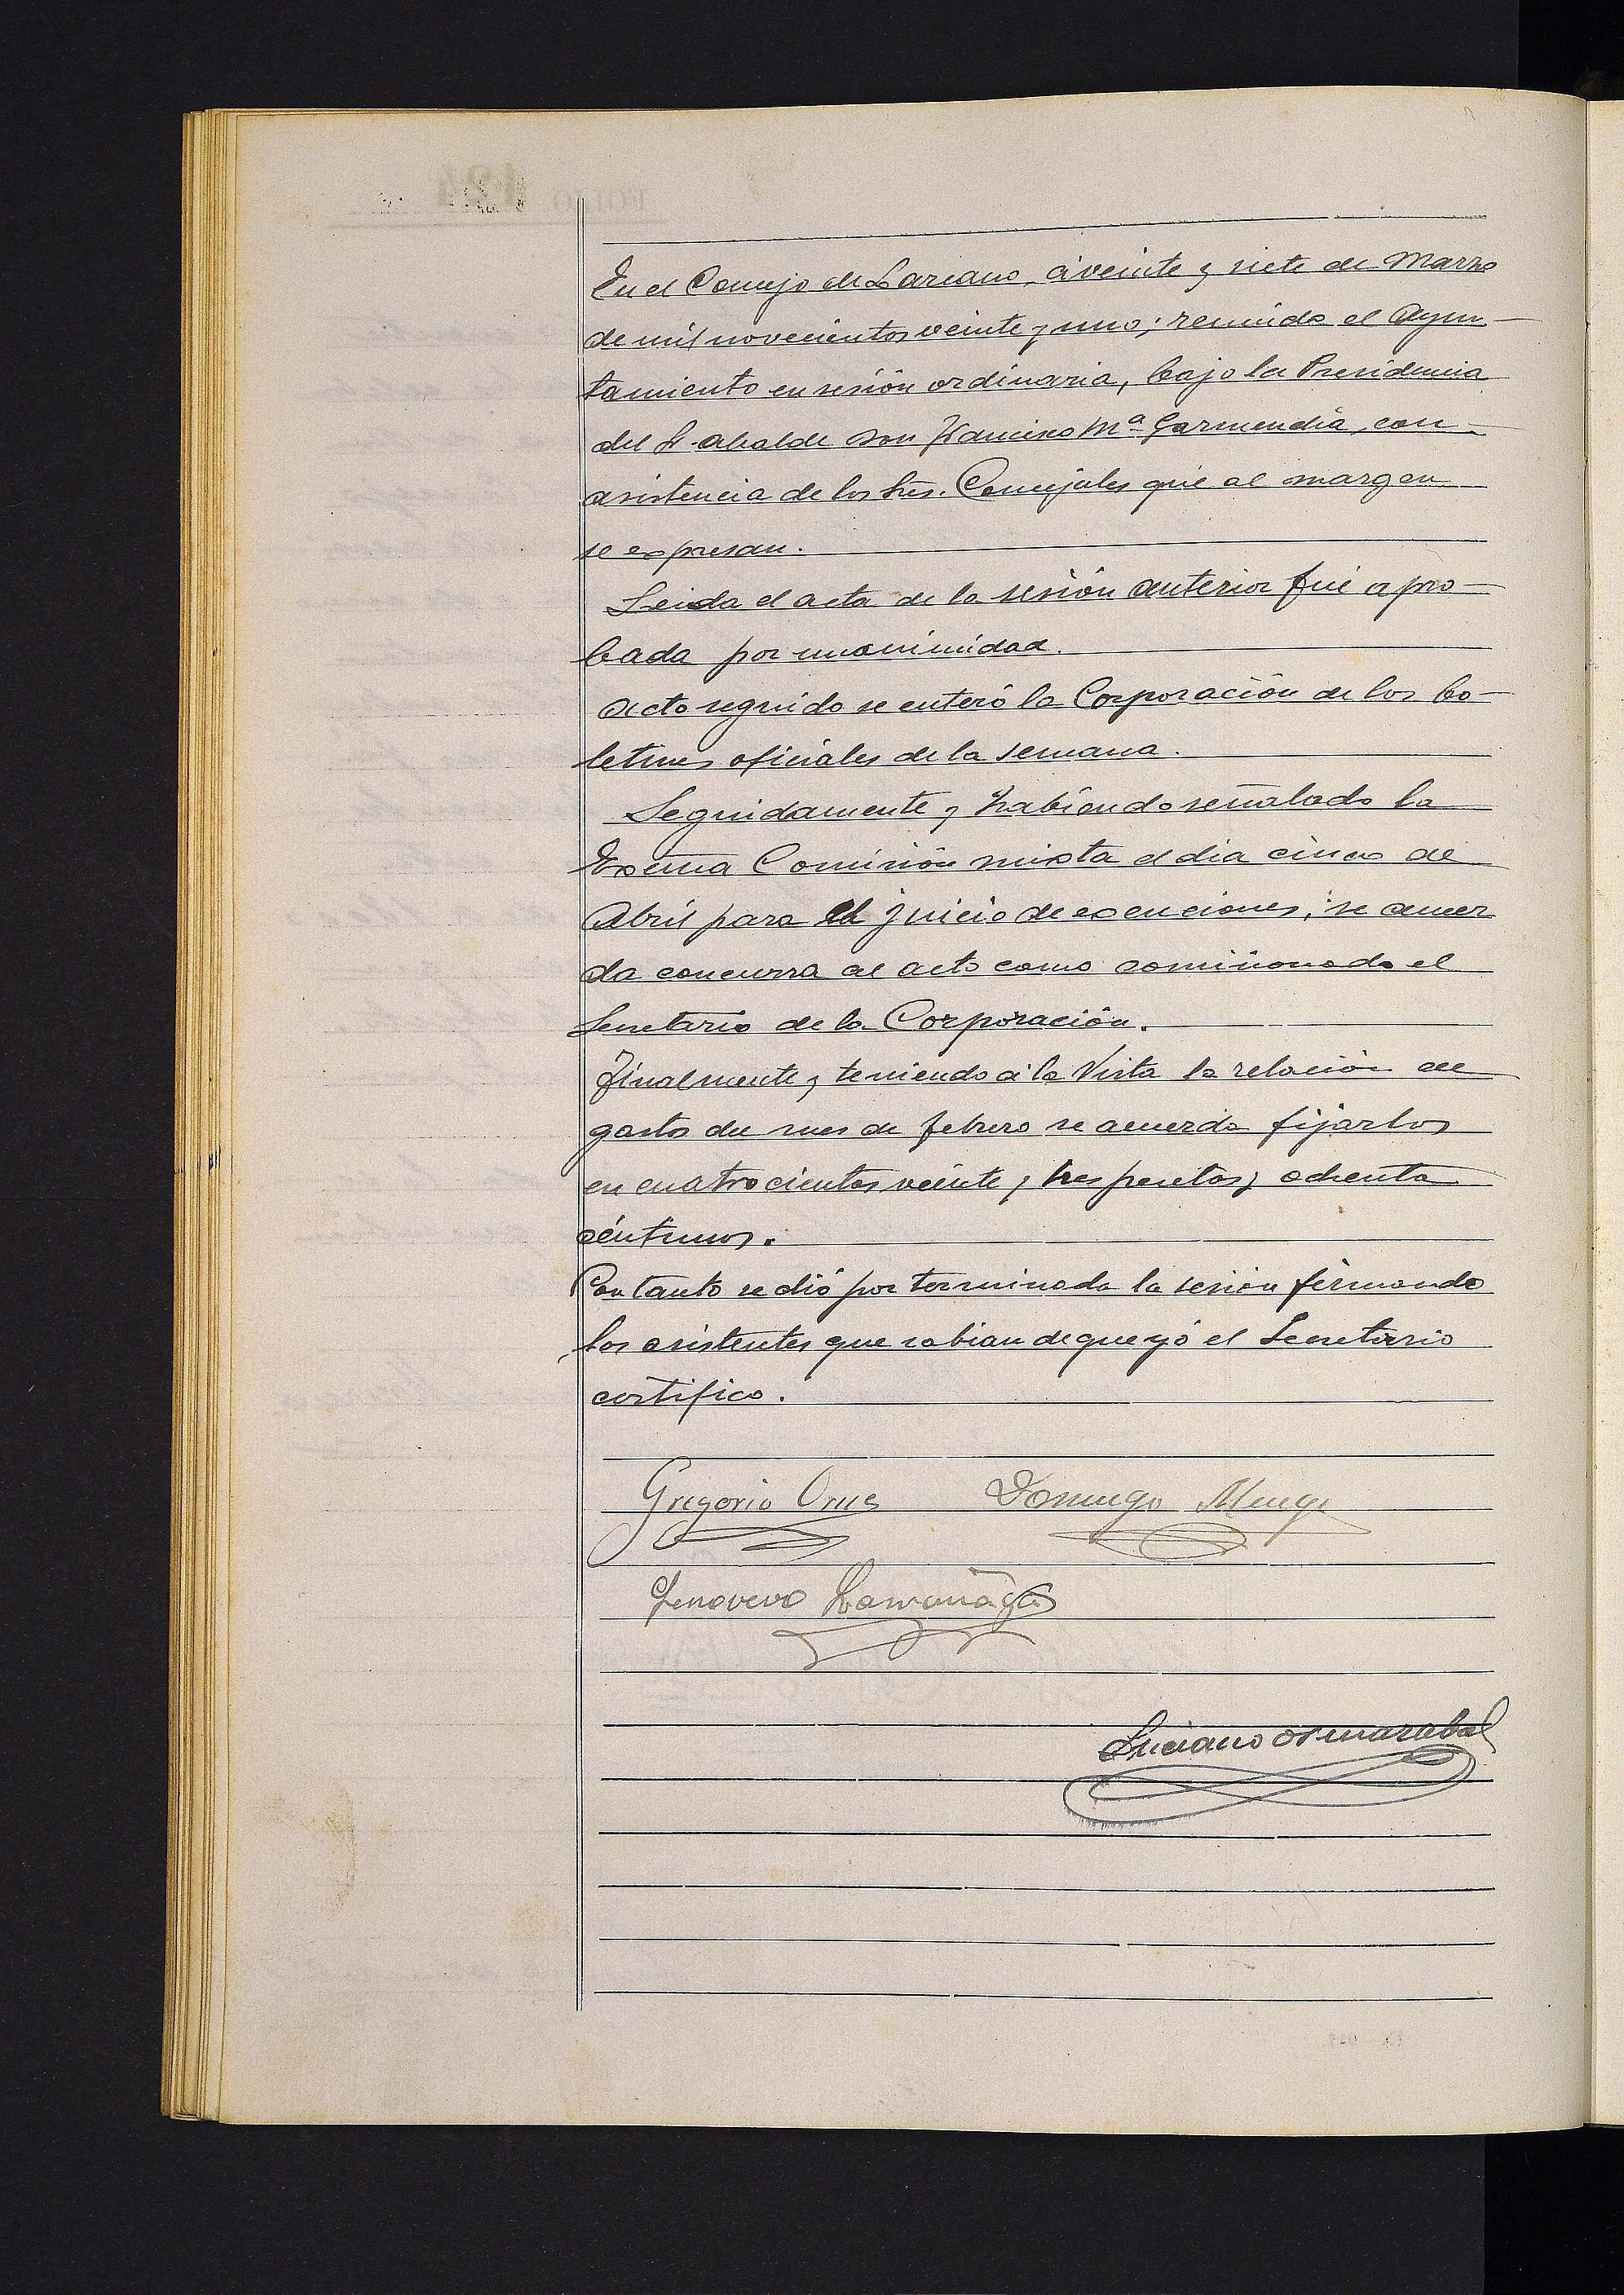 En el Concejo de Lazcano, á veinte y siete de Marzo
de mil novecientos veinte y uno; reunido el Ayun-
tamiento en sesión ordinaria, bajo la Presidencia
del Sr. Alcalde Don Francisco Mª Garmendia, con
asistencia de los Sres. Concejales que al margen
se expresan.
Leida el acta de la sesión anterior fué apro-
bada por unanimidad.
Acto seguido se enteró la Corporación de los bo-
letines oficiales de la semana.
Seguidamente y habiendo señalado la
Excma Comisión mixta el dia cinco de
Abril para el juicio de exenciones, se acuer
da concurra al acto como comisionado el
Secretario de la Corporación.
Finalmente y teniendo á la vista la relación de
gastos del mes de febrero se acuerda fijarlos
en cuatrocientas veinte y tres pesetas y ochenta
céntimos.
Con tanto se dió por terminada la sesión firmando
los asistentes que sabian de que yó el Secretario
certifico.
Gregorio Domingo
Genoveva
Luciano
FOLIO 124